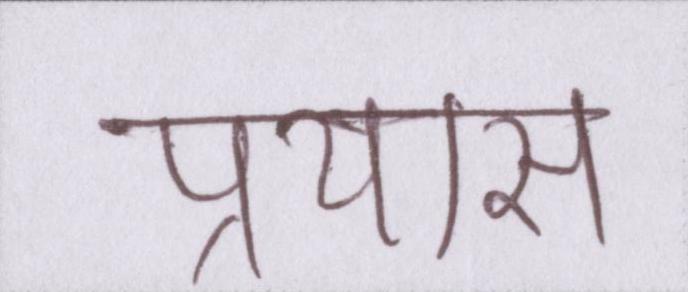 प्रयास